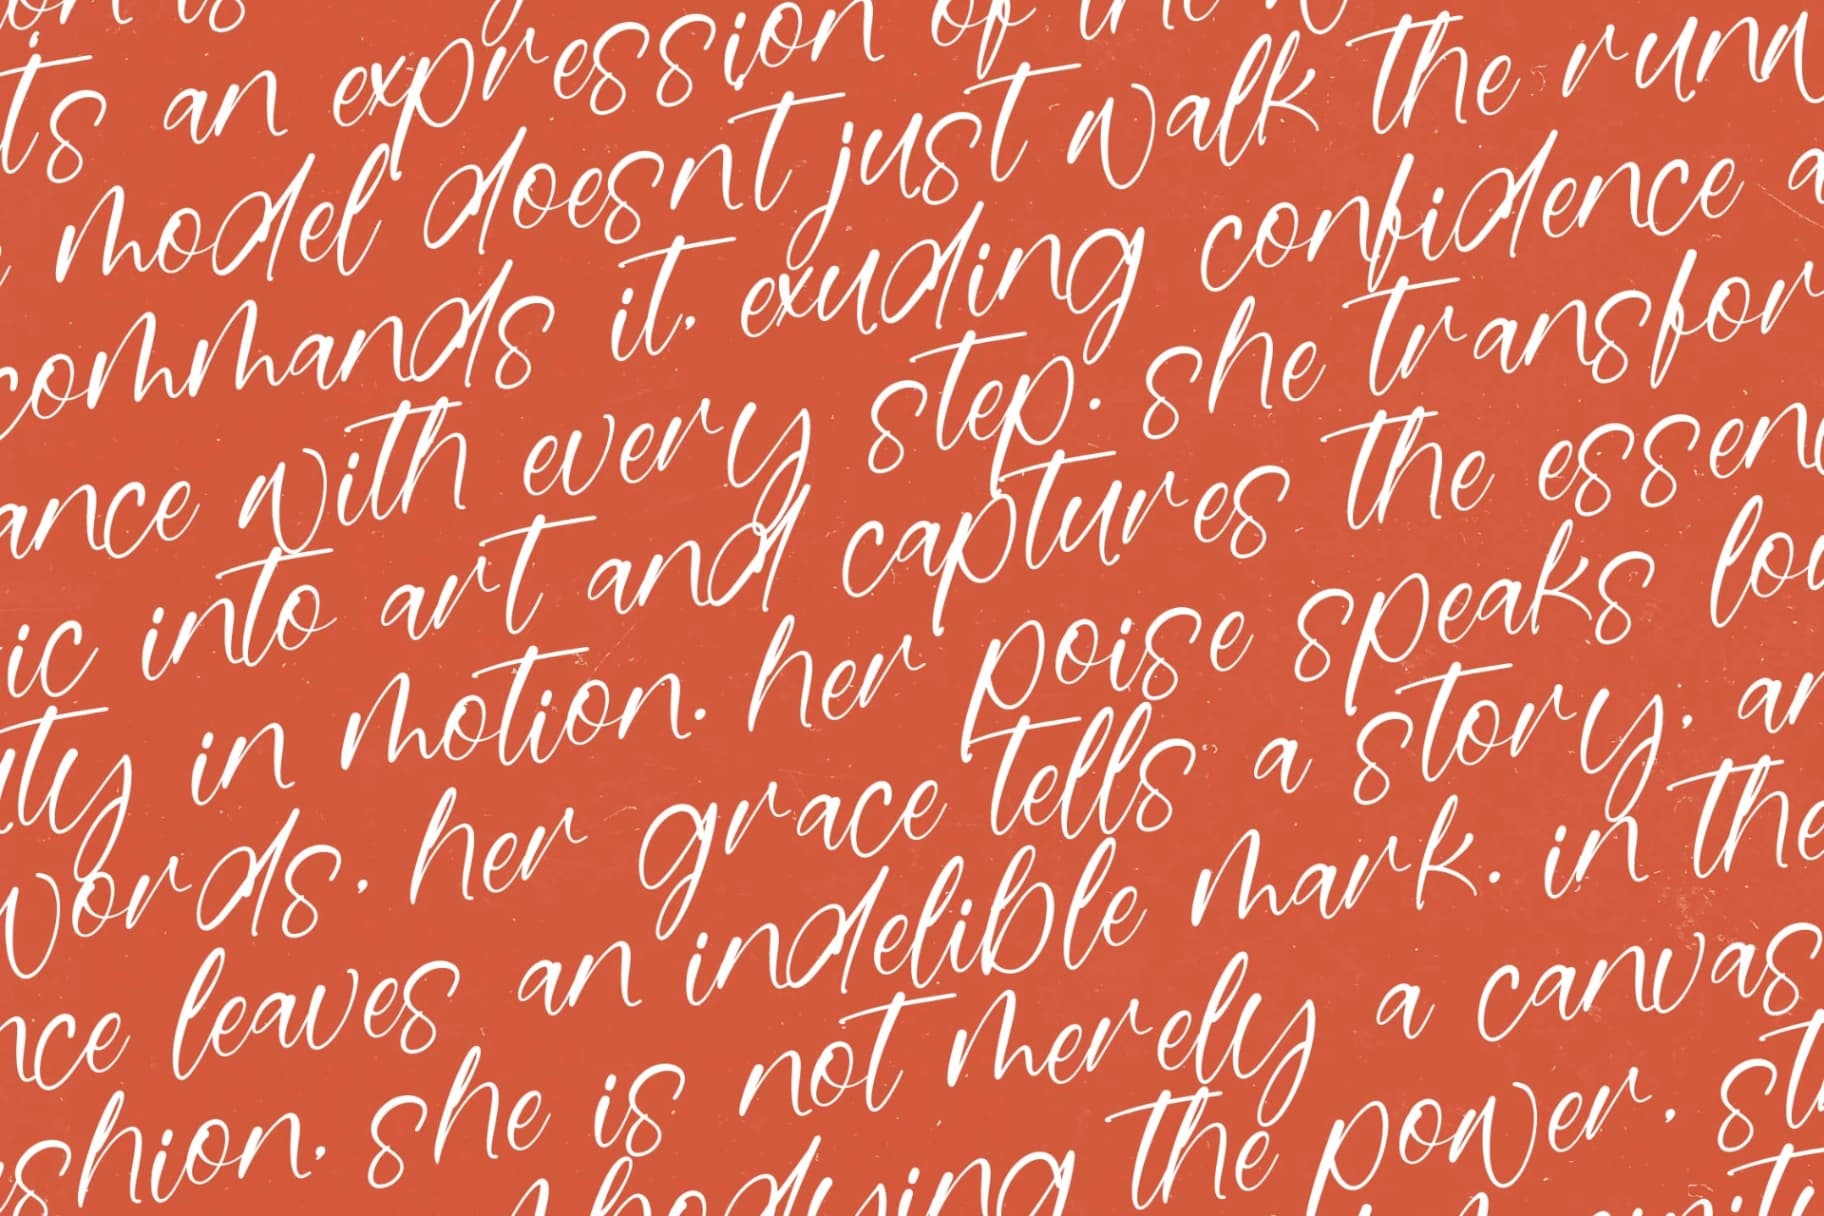 on is
its an expression of the
model doesnt just walk the runw
commands it, exuding confidence a
ance with every step. she transfor
ic into art and captures the essenc
uty in motion. her poise speaks lou
words, her grace tells a story, an
nce leaves an indelible mark. in the
shion, she is not merely a canvas
bodying the power, st